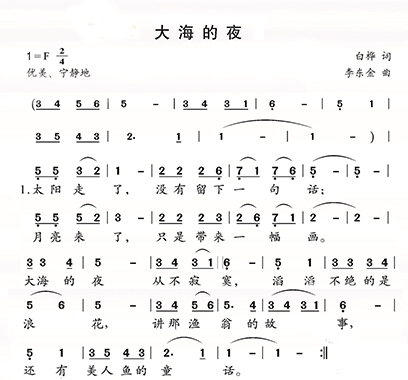 大海的夜
1=F 2/4 白桦 词
优美、宁静地 李东金 曲
(3 4 5 6 | 5 - | 3 4 3 1 | 6 · 5 |
3 5 4 3 | 2 · 1 | 1 - | 1 - ) |
5 5 3 2 | 1 - | 2 2 2 6 | 7 1 7 6 | 5 - | 5 - |
1.太阳走了, 没有留下一句话;
5 5 3 2 | 1 - | 2 2 2 3 | 2 6 7 6 | 1 - | 1 - |
月亮来了, 只是带来一幅画。
3 3 3 4 | 5 - | 3 4 3 1 | 6 - | 3 3 3 3 3 1 |
大海的夜 从不寂寞, 滔滔不绝的是
5 6 | 5 - | 2 2 2 3 | 5 6 6 | 5 - | 5 - |
浪花, 讲那渔翁的故事,
5 1 | 3 5 4 3 | 2 · 1 | 1 - :||
还有美人鱼的童话。